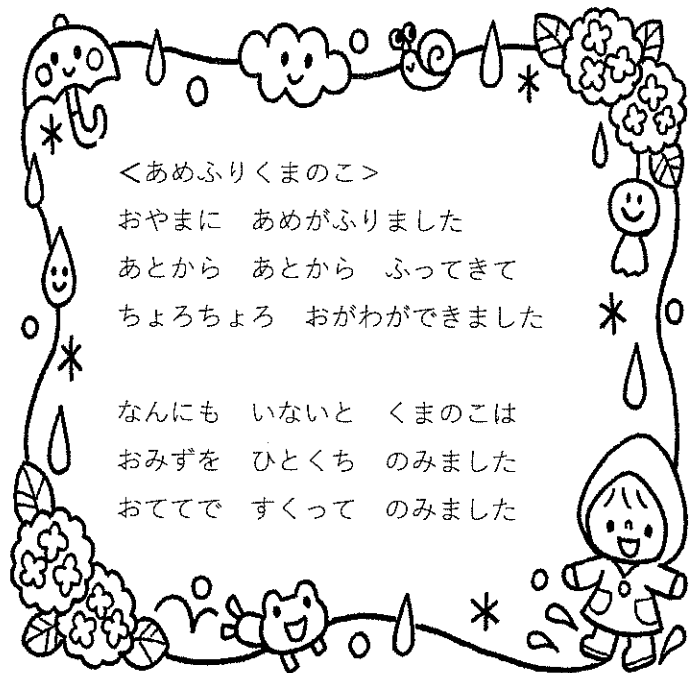 ＜あめふりくまのこ＞
おやまに　あめがふりました
あとから　あとから　ふってきて
ちょろちょろ　おがわができました
なんにも　いないと　くまのこは
おみずを　ひとくち　のみました
おててで　すくって　のみました